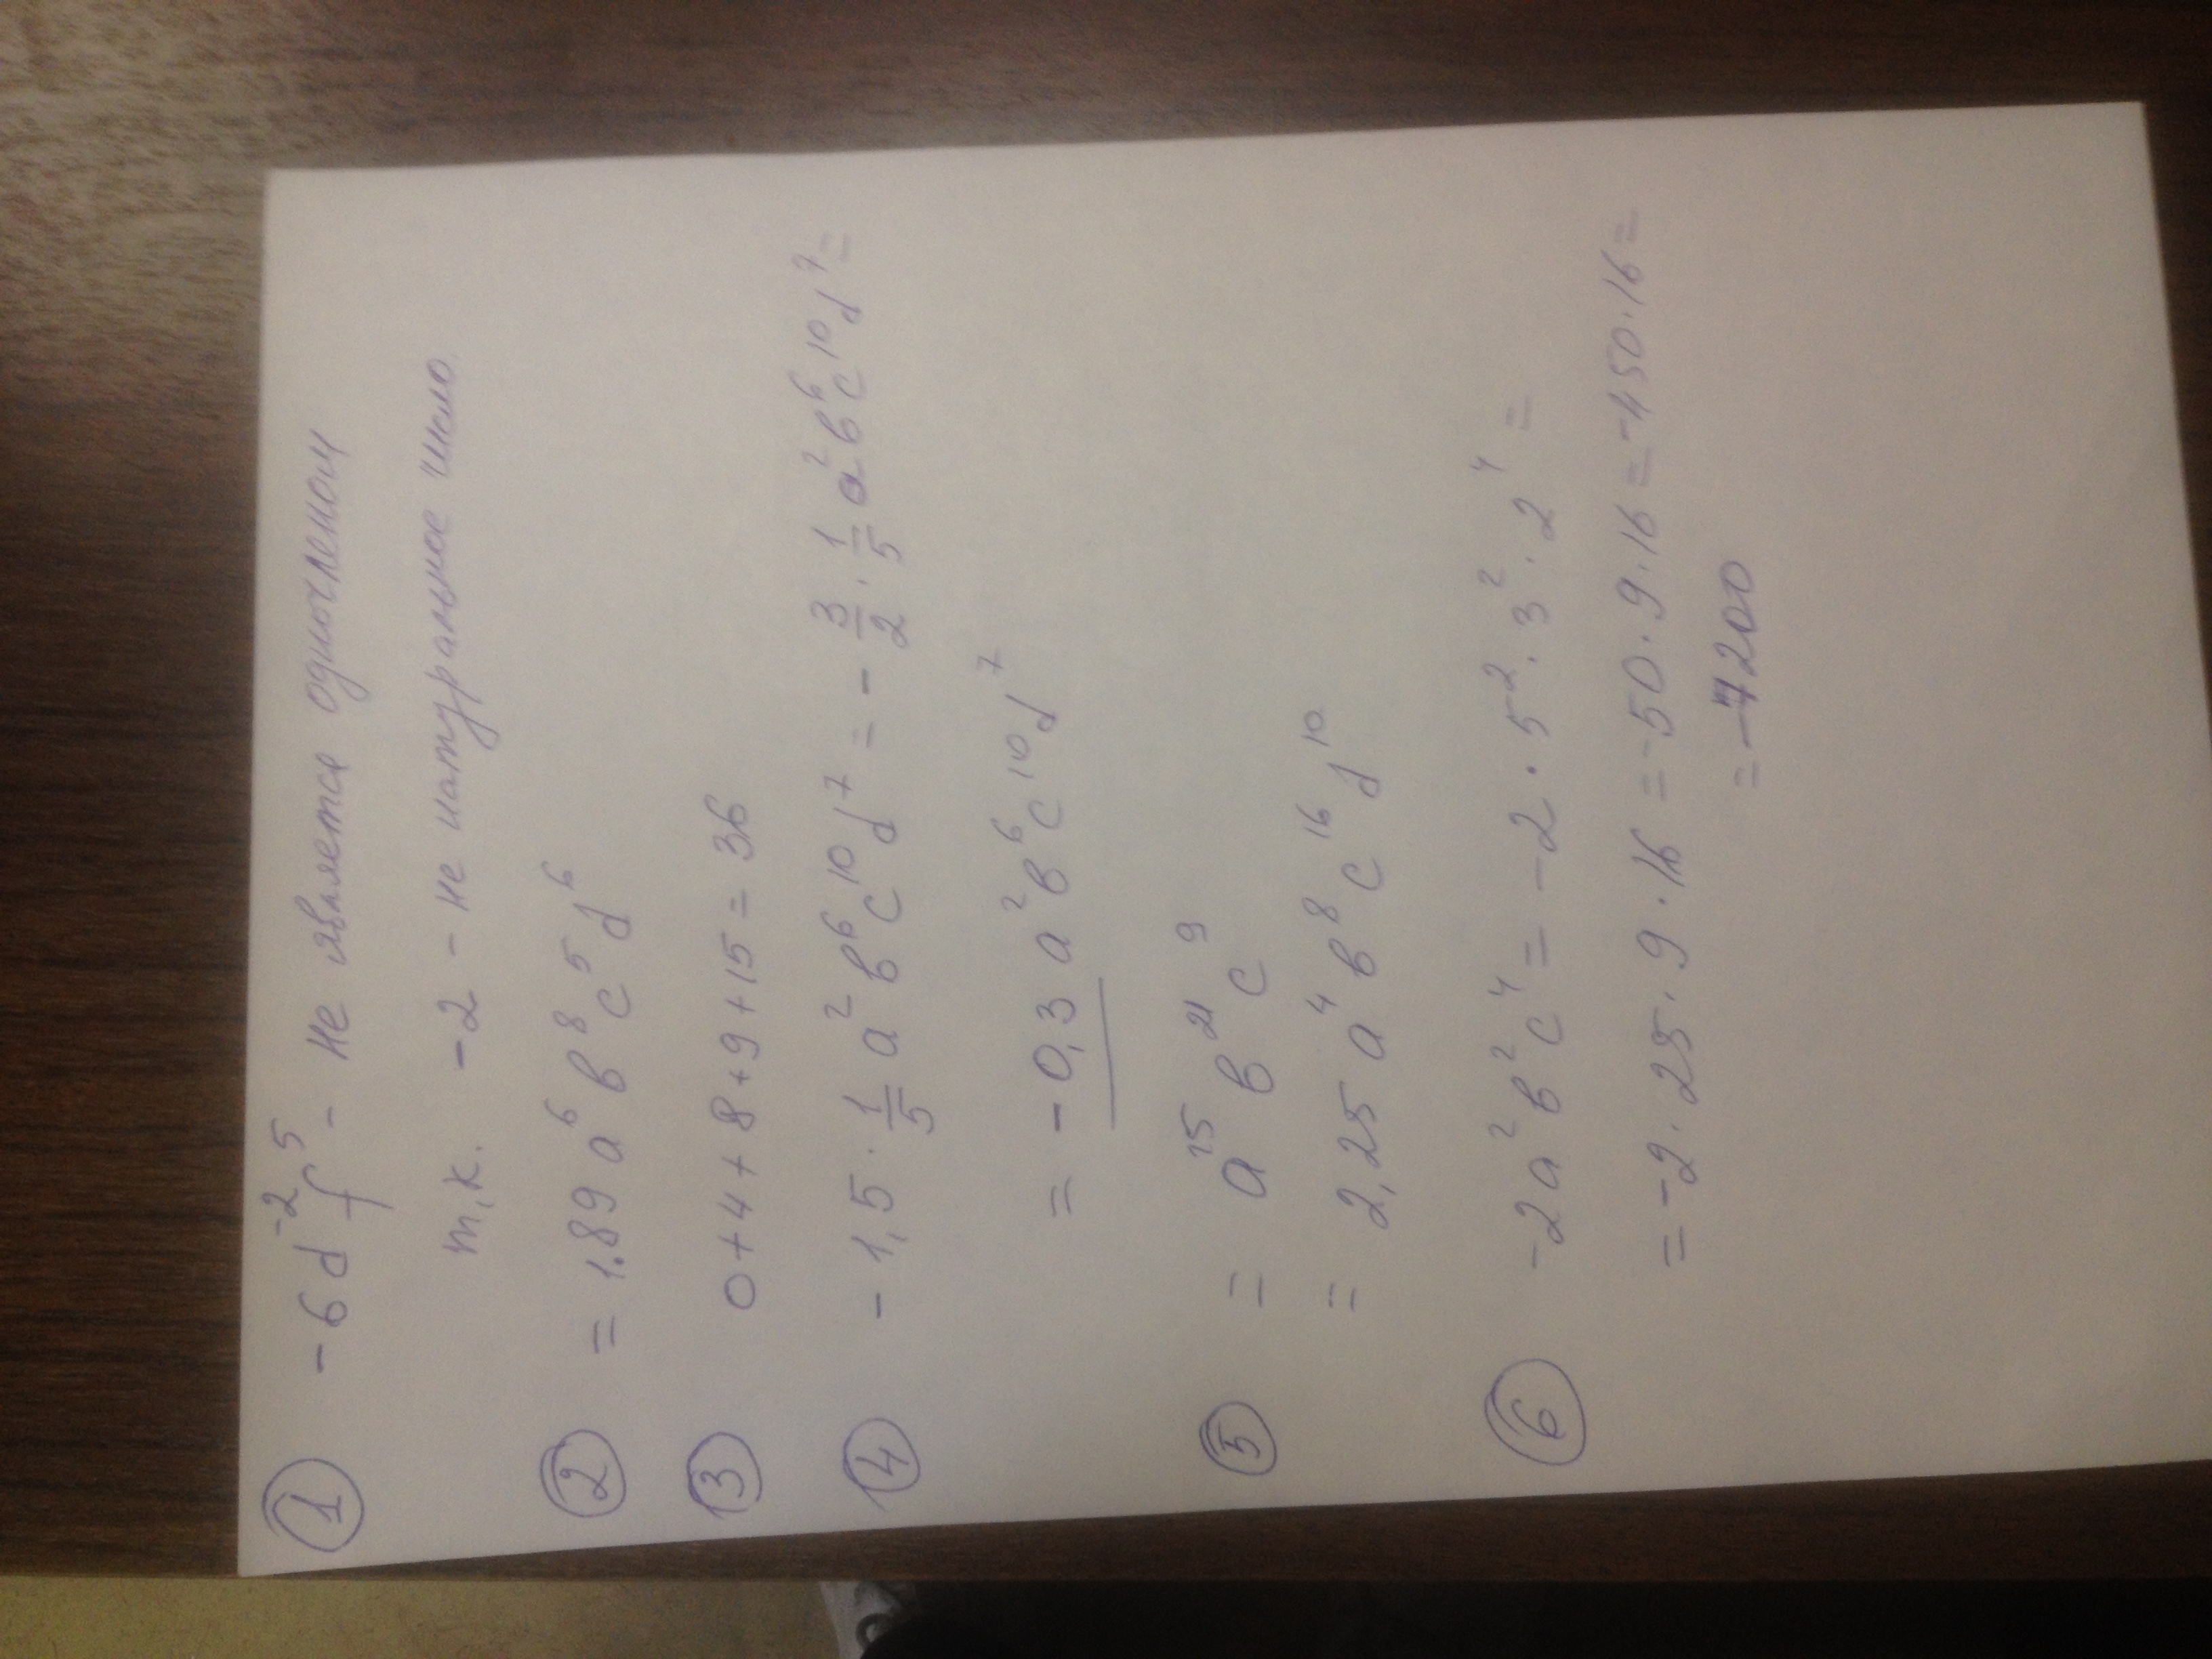 ① -6d⁻²f⁵ - не является одночленом
т.к. -2 - не натуральное число
② = 1.89 a⁶ в⁸ c⁵ d⁶
③ 0+4+8+9+15=36
④ -1,5 · 1/5 a² в⁶ c¹⁰ d⁷ = - 3/2 · 1/5 a² в⁶ c¹⁰ d⁷ =
= -0,3 a² в⁶ c¹⁰ d⁷
⑤ = a¹⁵ в²¹ c⁹
= 2,25 a⁴ в⁸ c¹⁶ d¹⁰
⑥ -2a² в² c⁴ = -2 · 5² · 3² · 2⁴ =
= -2 · 25 · 9 · 16 = -50 · 9 · 16 = -450 · 16 =
= -7200